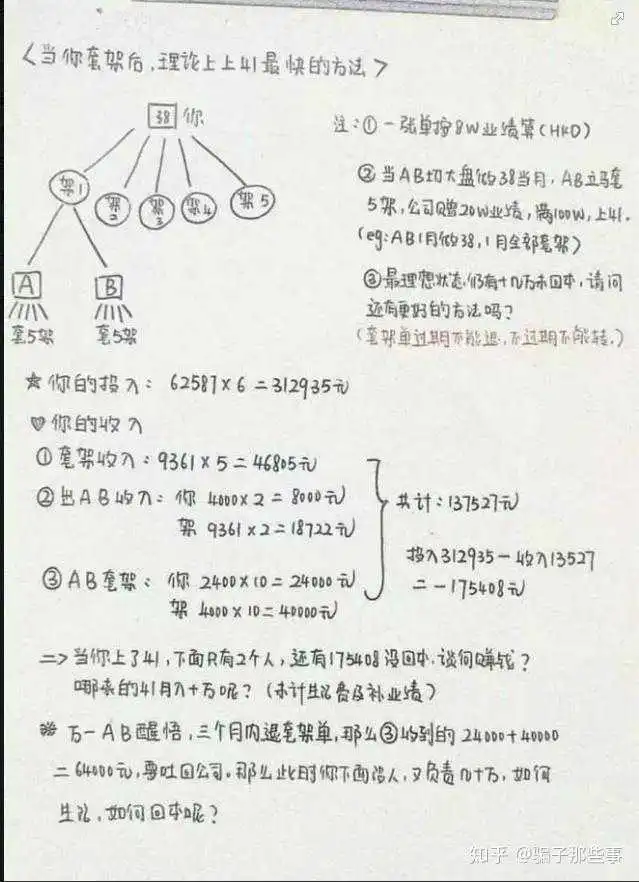 <当你套架后,理论上上41最快的方法>
38 你
架1 架2 架3 架4 架5
A B
套5架 套5架
注:①一张单按8W业绩算(HKD)
②当AB切大盘做38当月,AB立马套
5架,公司赠20W业绩,满100W,上41.
(eg:AB1月做38,1月全部套架)
③最理想状态,仍有十几万未回本,请问
还有更好的方法吗?
(套架单过期不能退,不过期不能转.)
☆你的投入: 62587×6=312935元
♡你的收入
①套架收入:9361×5=46805元
②出AB收入: 你 4000×2=8000元
架 9361×2=18722元
③AB套架: 你 2400×10=24000元
架 4000×10=40000元
共计:137527元
投入312935-收入13527
=-175408元
=>当你上了41,下面只有2个人,还有175408没回本.谈何赚钱?
哪来的41月入十万呢?(未计生活费及补业绩)
※万一AB醒悟,三个月内退套架单,那么③收到的24000+40000
=64000元,要吐回公司.那么此时你下面没人,又负责几十万,如何
生活,如何回本呢?
知乎 @骗子那些事